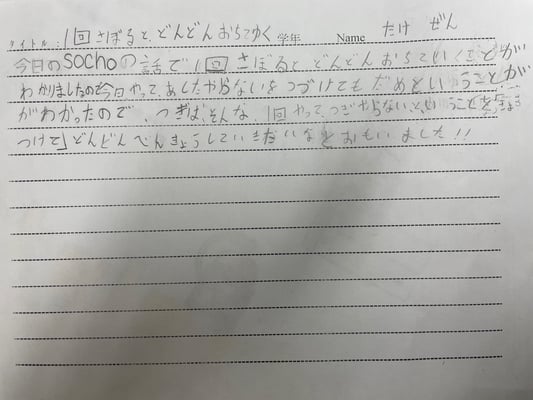 タイトル：1回さぼると、どんどんおちてゆく 学年 Name たけ ぜん
今日のsochoの話で1回さぼると、どんどんおちていくことが
わかりましたので今日やって、あしたやらないをつづけてもだめということが
がわかったので、つぎは、そんな、1回やって、つぎやらない、ということを
つけて」どんどんべんきょうしていきたいなとおもいました!!